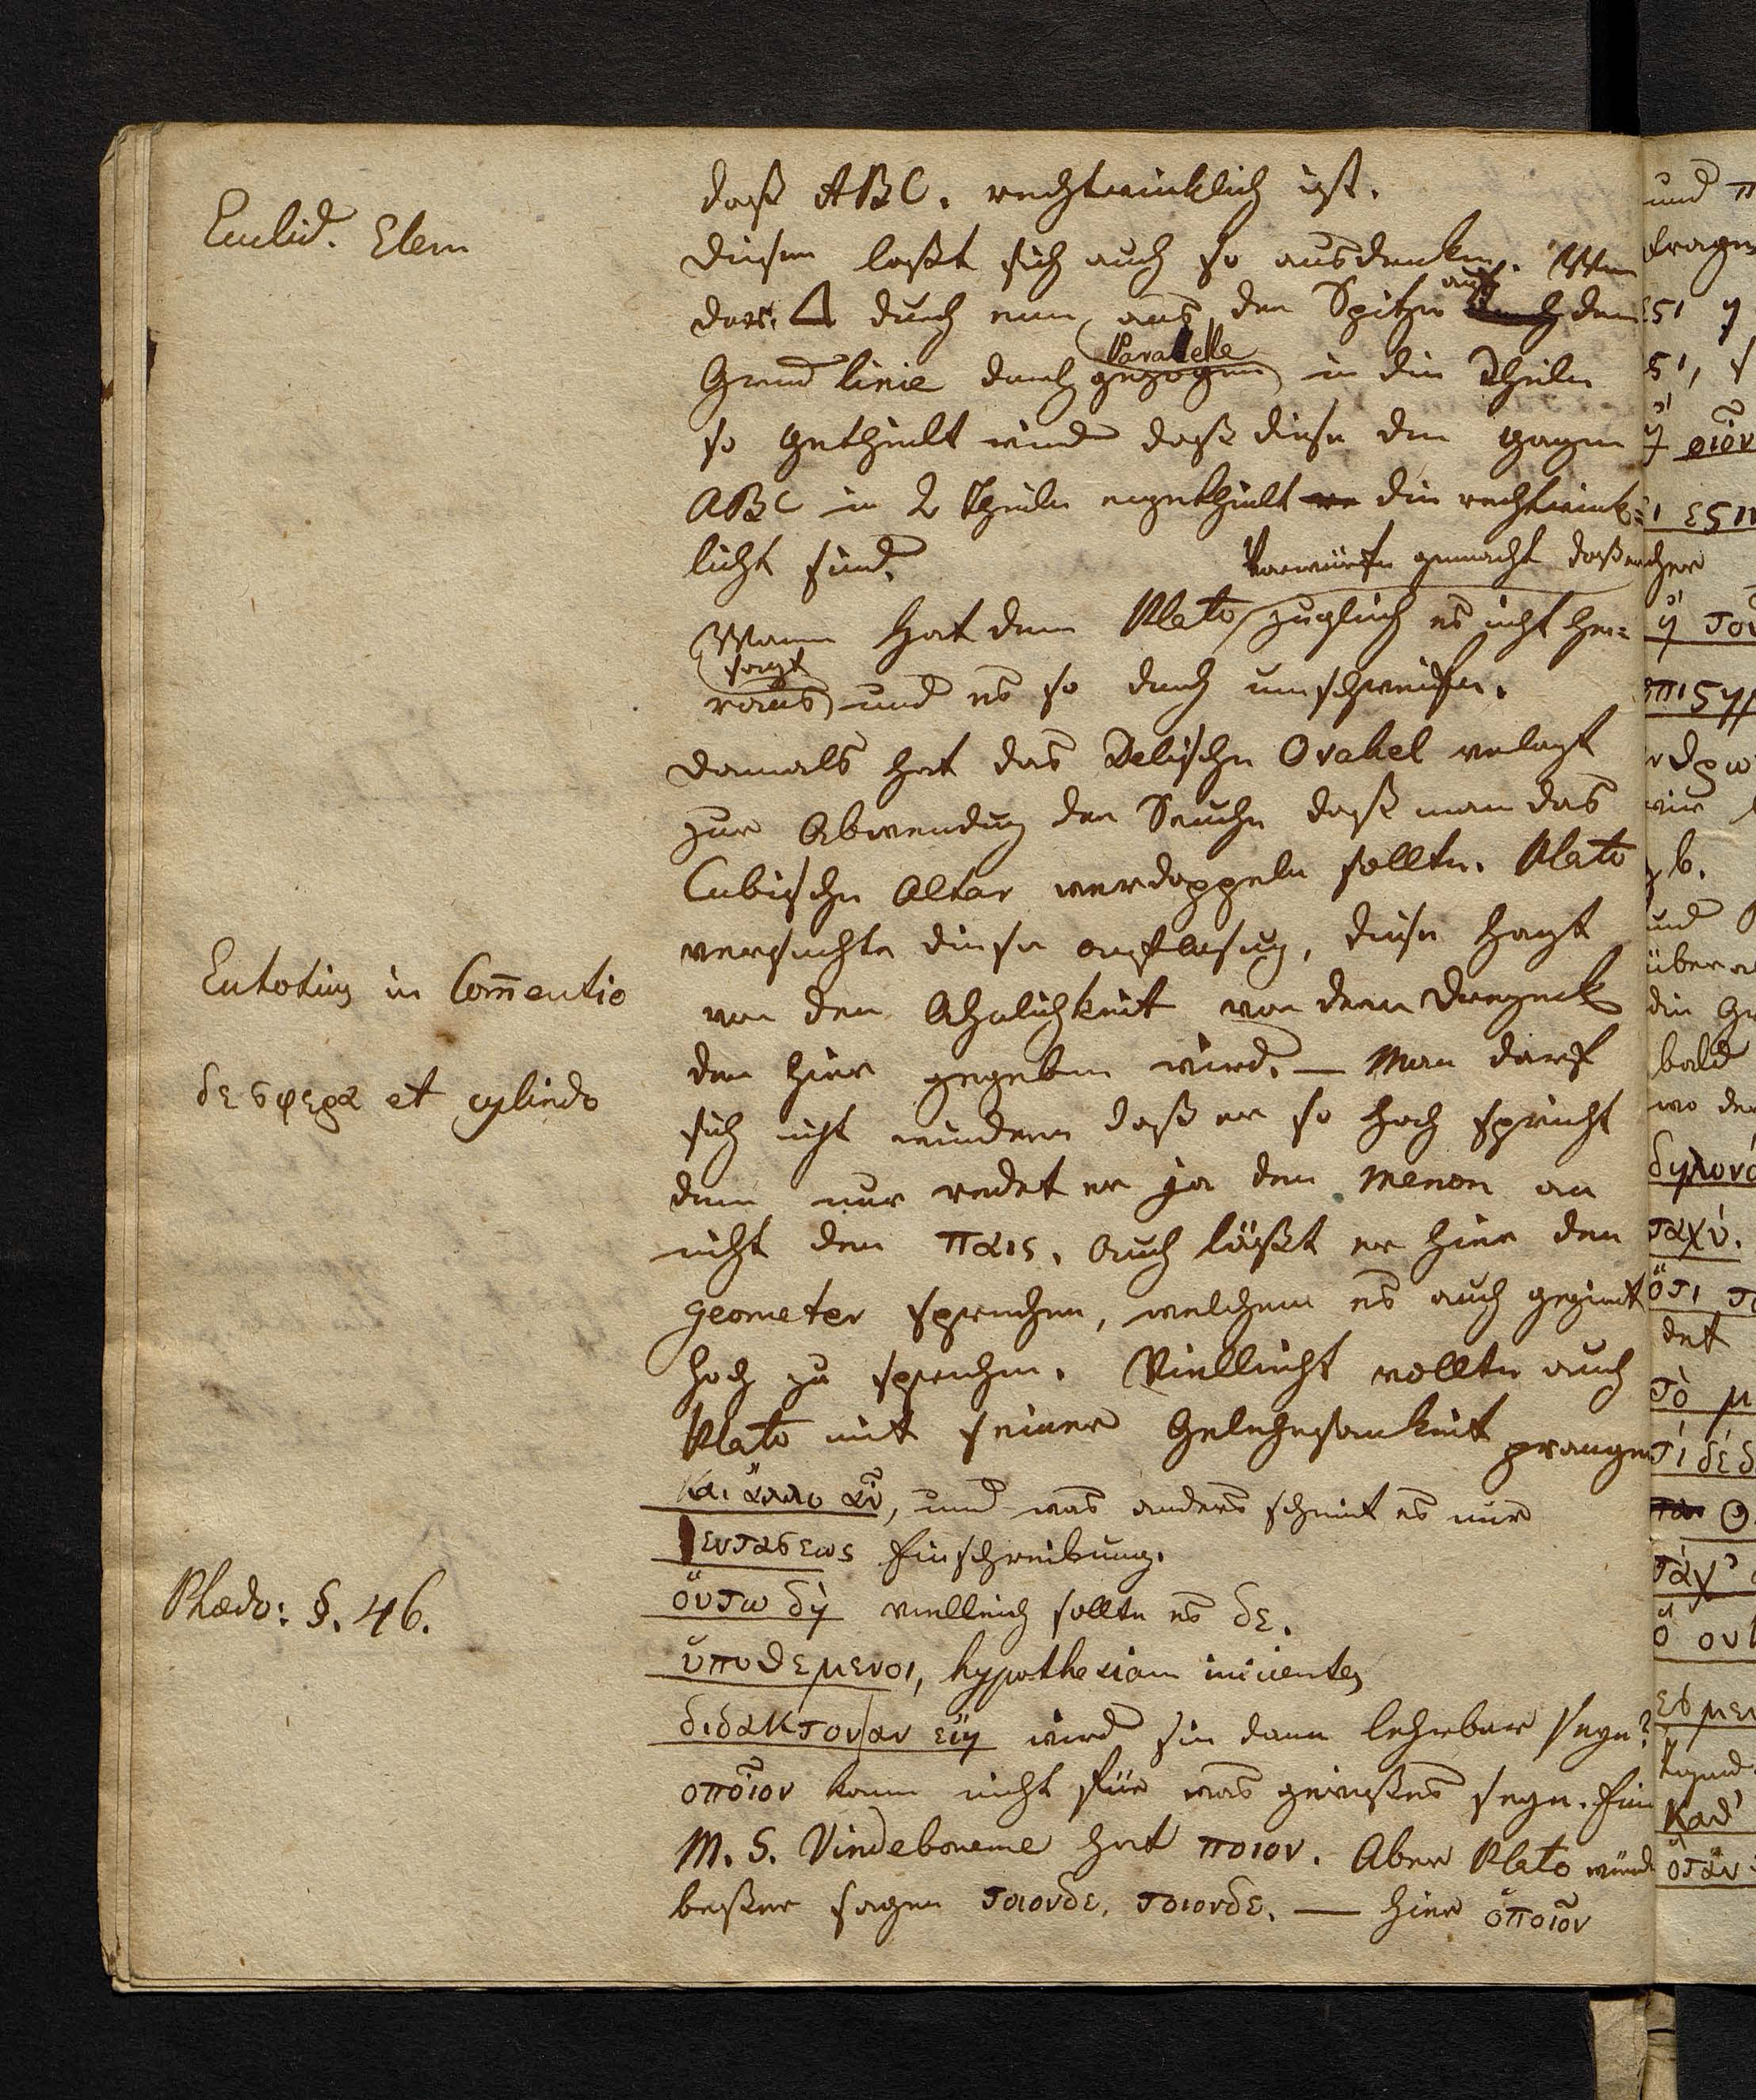 Euclid. Elem
daß ABC. rechtwinklich ist.
Dieses laßt sich auch so ausdenken. Wenn
das. Δ durch eine aus der Spitze auf dem
Parallele
Grundlinie durch gezogen in die Theile
so getheilt wird daß diese den ganzen
ABC in 2 Theile eingetheilt die rechtwink=
licht sind.
Vorwürfe gemacht daß er
Mann hat dem Plato zugleich es nicht her=
sagt
raus und es so durch umschweifen.
Damals hat das Delische Orakel verlagt
zur Abwendug der Seuche daß man das
Cubische Altar verdoppeln sollte. Plato
versuchte diese auflosug, diese hangt
von der Ahnlichkeit von dem Dreyeck
Eutotius in Com̅entio
der hier gegeben wird. — Man darf
δε σφερα et cylindo
sich nicht wundern daß er so hoch spricht
denn nur redet er ja den Menon an
nicht den παις. Auch läßt er hier den
geometer sprechen, welchem es auch geziemt
hoch zu sprechen. Vielleicht wollte auch
Plato mit seiner Gelehrsamkeit prangen
και ἄλλο αῦ, und was anders scheint es mir
ἐντασεως Einschreibung.
Phædo: §. 46.
ὅυτω δὴ vielleich sollte es δε.
ὑποθεμενοι, hypothesiam inicientes
διδακτον/αν εἴη wird sie dann lehrbar seyn?
οποῖον kann nicht für was gewißes seyn. Ein
M. S. Vindeboneme hat ποιον. Aber Plato würde
beßer sagen τοιονδε, τοιονδε. — hier ὁποῖον